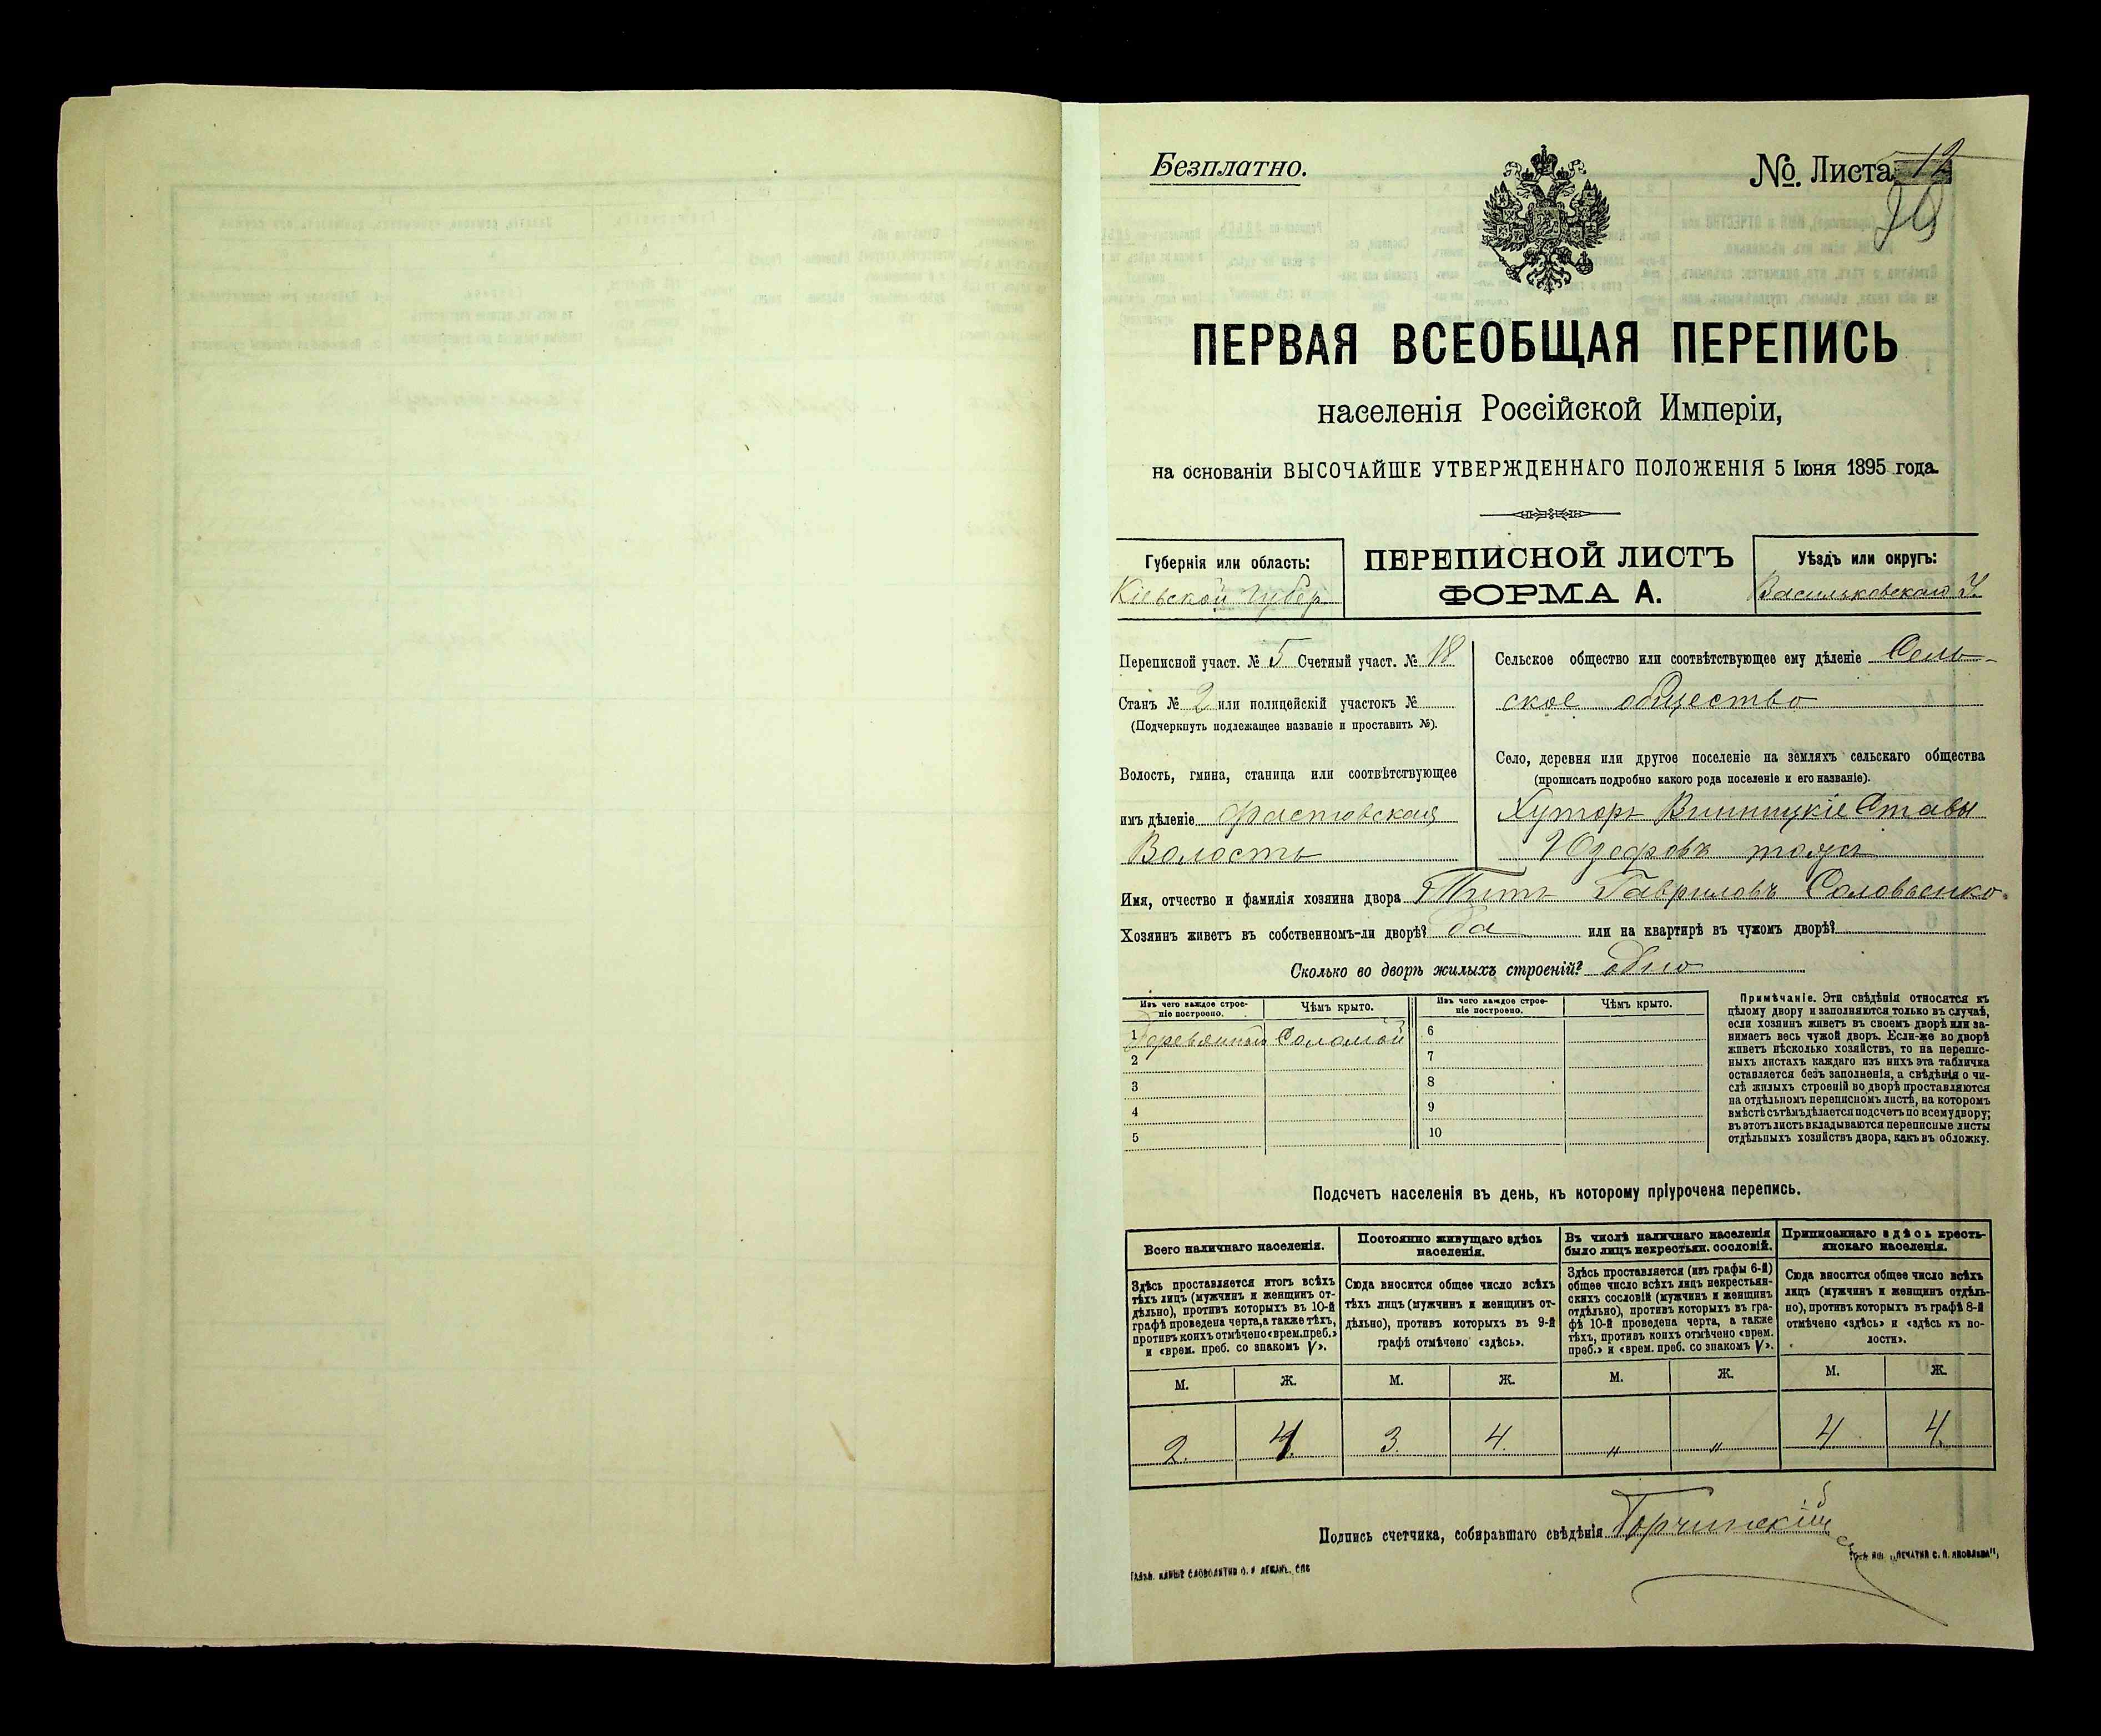 Безплатно.
№. Листа 12
ПЕРВАЯ ВСЕОБЩАЯ ПЕРЕПИСЬ
населенія Россійской Имперіи,
на основаніи ВЫСОЧАЙШЕ УТВЕРЖДЕННАГО ПОЛОЖЕНІЯ 5 Іюня 1895 года.
Губернія или область:
Кіевской Губер.
ПЕРЕПИСНОЙ ЛИСТЪ
ФОРМА А.
Уѣздъ или округъ:
Васильковскаго У.
Переписной участ. № 5 Счетный участ. № 18
Станъ № 2 или полицейскій участокъ №
(Подчеркнуть подлежащее названіе и проставить №).
Волость, гмина, станица или соотвѣтствующее
имъ дѣленіе Фастовская
Волость
Сельское общество или соотвѣтствующее ему дѣленіе Сель-
ское общество
Село, деревня или другое поселеніе на земляхъ сельскаго общества
(прописать подробно какого рода поселеніе и его названіе).
Хуторъ Винницкіе Ставы
Юзефовъ тожъ
Имя, отчество и фамилія хозяина двора Титъ Гавриловъ Соловьенко.
Хозяинъ живетъ въ собственномъ-ли дворѣ? да или на квартирѣ въ чужомъ дворѣ?
Сколько во дворѣ жилыхъ строеній? одно
Изъ чего каждое строе-
ніе построено.
Чѣмъ крыто.
Изъ чего каждое строе-
ніе построено.
Чѣмъ крыто.
1 Соломой
2
3
4
5
6
7
8
9
10
Примѣчаніе. Эти свѣдѣнія относятся къ
цѣлому двору и заполняются только въ случаѣ,
если хозяинъ живетъ въ своемъ дворѣ или за-
нимаетъ весь чужой дворъ. Если-же во дворѣ
живетъ нѣсколько хозяйствъ, то на перепис-
ныхъ листахъ каждаго изъ нихъ эта табличка
оставляется безъ заполненія, а свѣдѣнія о чи-
слѣ жилыхъ строеній во дворѣ проставляются
на отдѣльномъ переписномъ листѣ, на которомъ
вмѣстѣ съ тѣмъ дѣлается подсчетъ по всему двору;
въ этотъ листъ вкладываются переписные листы
отдѣльныхъ хозяйствъ двора, какъ въ обложку.
Подсчетъ населенія въ день, къ которому пріурочена перепись.
Всего наличнаго населенія.
Здѣсь проставляется итогъ всѣхъ
тѣхъ лицъ (мужчинъ и женщинъ от-
дѣльно), противъ которыхъ въ 10-й
графѣ проведена черта, а также тѣхъ,
противъ коихъ отмѣчено «врем. преб.»
и «врем. преб. со знакомъ V».
Постоянно живущаго здѣсь
населенія.
Сюда вносится общее число всѣхъ
тѣхъ лицъ (мужчинъ и женщинъ от-
дѣльно), противъ которыхъ въ 9-й
графѣ отмѣчено «здѣсь».
Въ числѣ наличнаго населенія
было лицъ некрестьян. сословій.
Здѣсь проставляется (изъ графы 6-й)
общее число всѣхъ лицъ некрестьян-
скихъ сословій (мужчинъ и женщинъ
отдѣльно), противъ которыхъ въ гра-
фѣ 10-й проведена черта, а также
тѣхъ, противъ коихъ отмѣчено «врем.
преб.» и «врем. преб. со знакомъ V».
Приписаннаго здѣсь кресть-
янскаго населенія.
Сюда вносится общее число всѣхъ
лицъ (мужчинъ и женщинъ отдѣль-
но), противъ которыхъ въ графѣ 8-й
отмѣчено «здѣсь» и «здѣсь къ во-
лости».
М. Ж. М. Ж. М. Ж. М. Ж.
2. 4. 3. 4. " " 4 4.
Подпись счетчика, собиравшаго свѣдѣнія Горчинскій